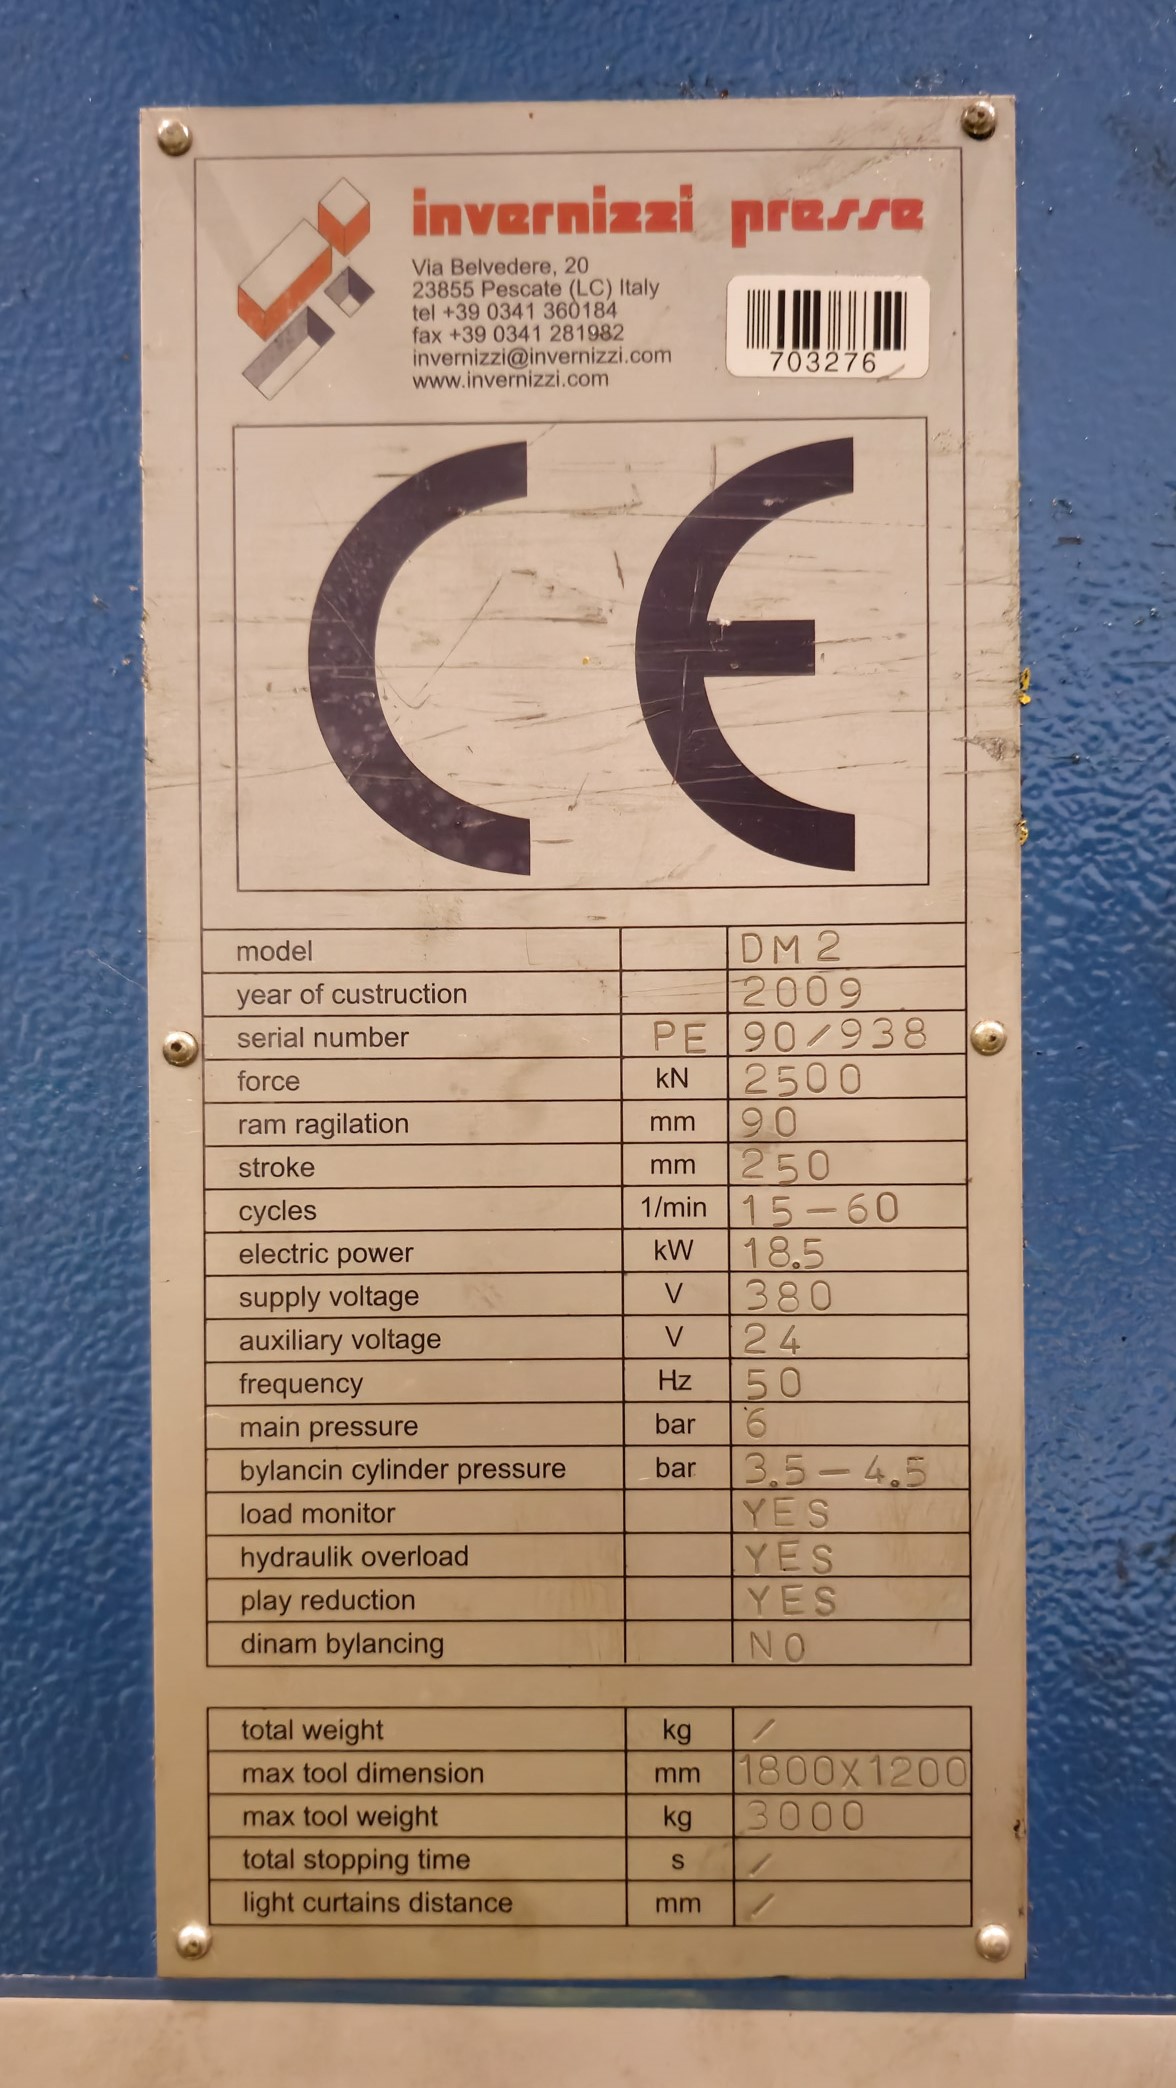 invernizzi presse
Via Belvedere, 20
23855 Pescate (LC) Italy
tel +39 0341 360184
fax +39 0341 281982
invernizzi@invernizzi.com
www.invernizzi.com
703276
CE
model DM2
year of custruction 2009
serial number PE 90/938
force kN 2500
ram ragilation mm 90
stroke mm 250
cycles 1/min 15-60
electric power kW 18.5
supply voltage V 380
auxiliary voltage V 24
frequency Hz 50
main pressure bar 6
bylancin cylinder pressure bar 3.5-4.5
load monitor YES
hydraulik overload YES
play reduction YES
dinam bylancing NO
total weight kg /
max tool dimension mm 1800X1200
max tool weight kg 3000
total stopping time s /
light curtains distance mm /